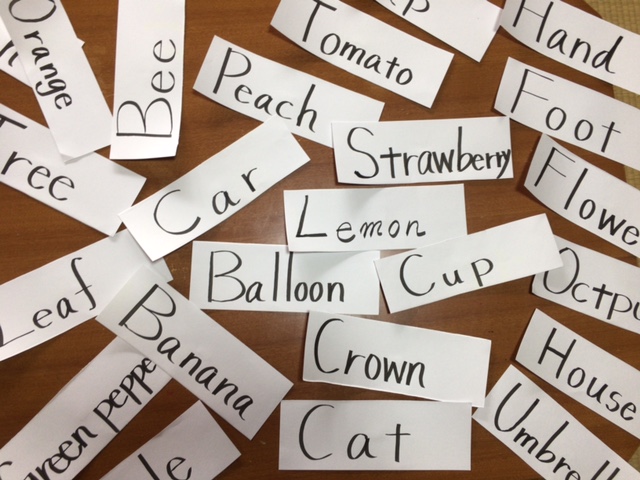 Orange
Bee
Tomato
Hand
Peach
Foot
Tree
Car
Strawberry
Flowe
Lemon
Balloon
Cup
Octpu
Leaf
Banana
Crown
House
Green peppe
Cat
Umbrell
le